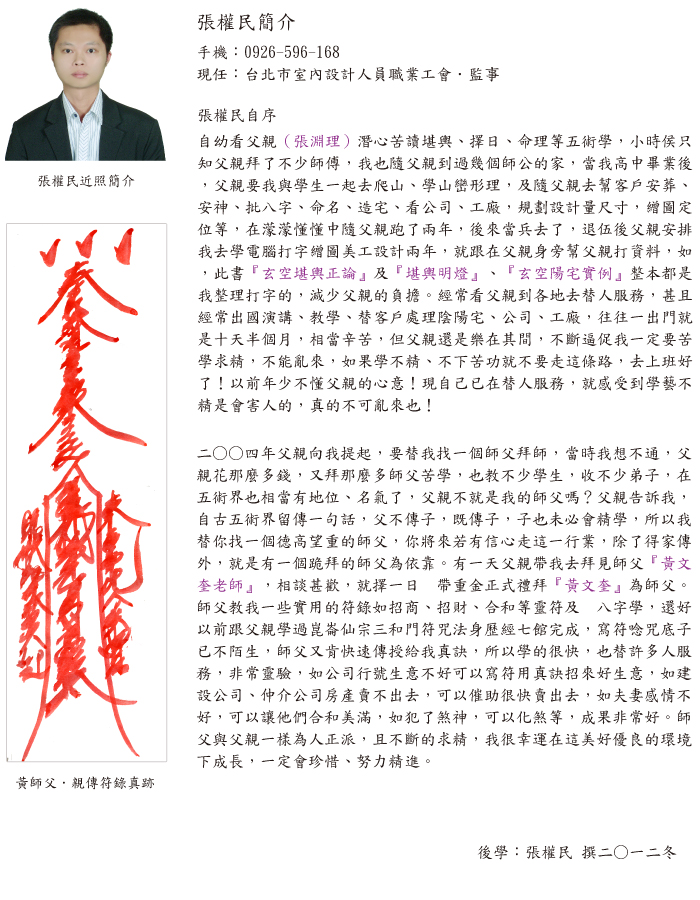 張權民簡介
手機：0926-596-168
現任：台北市室內設計人員職業工會．監事
張權民近照簡介
張權民自序
自幼看父親（張淵理）潛心苦讀堪輿、擇日、命理等五術學，小時侯只
知父親拜了不少師傅，我也隨父親到過幾個師公的家，當我高中畢業後
，父親要我與學生一起去爬山、學山巒形理，及隨父親去幫客戶安葬、
安神、批八字、命名、造宅、看公司、工廠，規劃設計量尺寸，繪圖定
位等，在濛濛懂懂中隨父親跑了兩年，後來當兵去了，退伍後父親安排
我去學電腦打字繪圖美工設計兩年，就跟在父親身旁幫父親打資料，如
，此書『玄空堪輿正論』及『堪輿明燈』、『玄空陽宅實例』整本都是
我整理打字的，減少父親的負擔。經常看父親到各地去替人服務，甚且
經常出國演講、教學、替客戶處理陰陽宅、公司、工廠，往往一出門就
是十天半個月，相當辛苦，但父親還是樂在其間，不斷逼促我一定要苦
學求精，不能亂來，如果學不精、不下苦功就不要走這條路，去上班好
了！以前年少不懂父親的心意！現自己已在替人服務，就感受到學藝不
精是會害人的，真的不可亂來也！
二○○四年父親向我提起，要替我找一個師父拜師，當時我想不通，父
親花那麼多錢，又拜那麼多師父苦學，也教不少學生，收不少弟子，在
五術界也相當有地位、名氣了，父親不就是我的師父嗎？父親告訴我，
自古五術界留傳一句話，父不傳子，既傳子，子也未必會精學，所以我
替你找一個德高望重的師父，你將來若有信心走這一行業，除了得家傳
外，就是有一個跪拜的師父為依靠。有一天父親帶我去拜見師父『黃文
奎老師』，相談甚歡，就擇一日　帶重金正式禮拜『黃文奎』為師父。
師父教我一些實用的符錄如招商、招財、合和等靈符及　八字學，還好
以前跟父親學過崑崙仙宗三和門符咒法身歷經七館完成，寫符唸咒底子
已不陌生，師父又肯快速傳授給我真訣，所以學的很快，也替許多人服
務，非常靈驗，如公司行號生意不好可以寫符用真訣招來好生意，如建
設公司、仲介公司房產賣不出去，可以催助很快賣出去，如夫妻感情不
好，可以讓他們合和美滿，如犯了煞神，可以化煞等，成果非常好。師
父與父親一樣為人正派，且不斷的求精，我很幸運在這美好優良的環境
下成長，一定會珍惜、努力精進。
黃師父．親傳符錄真跡
後學：張權民 撰二○一二冬